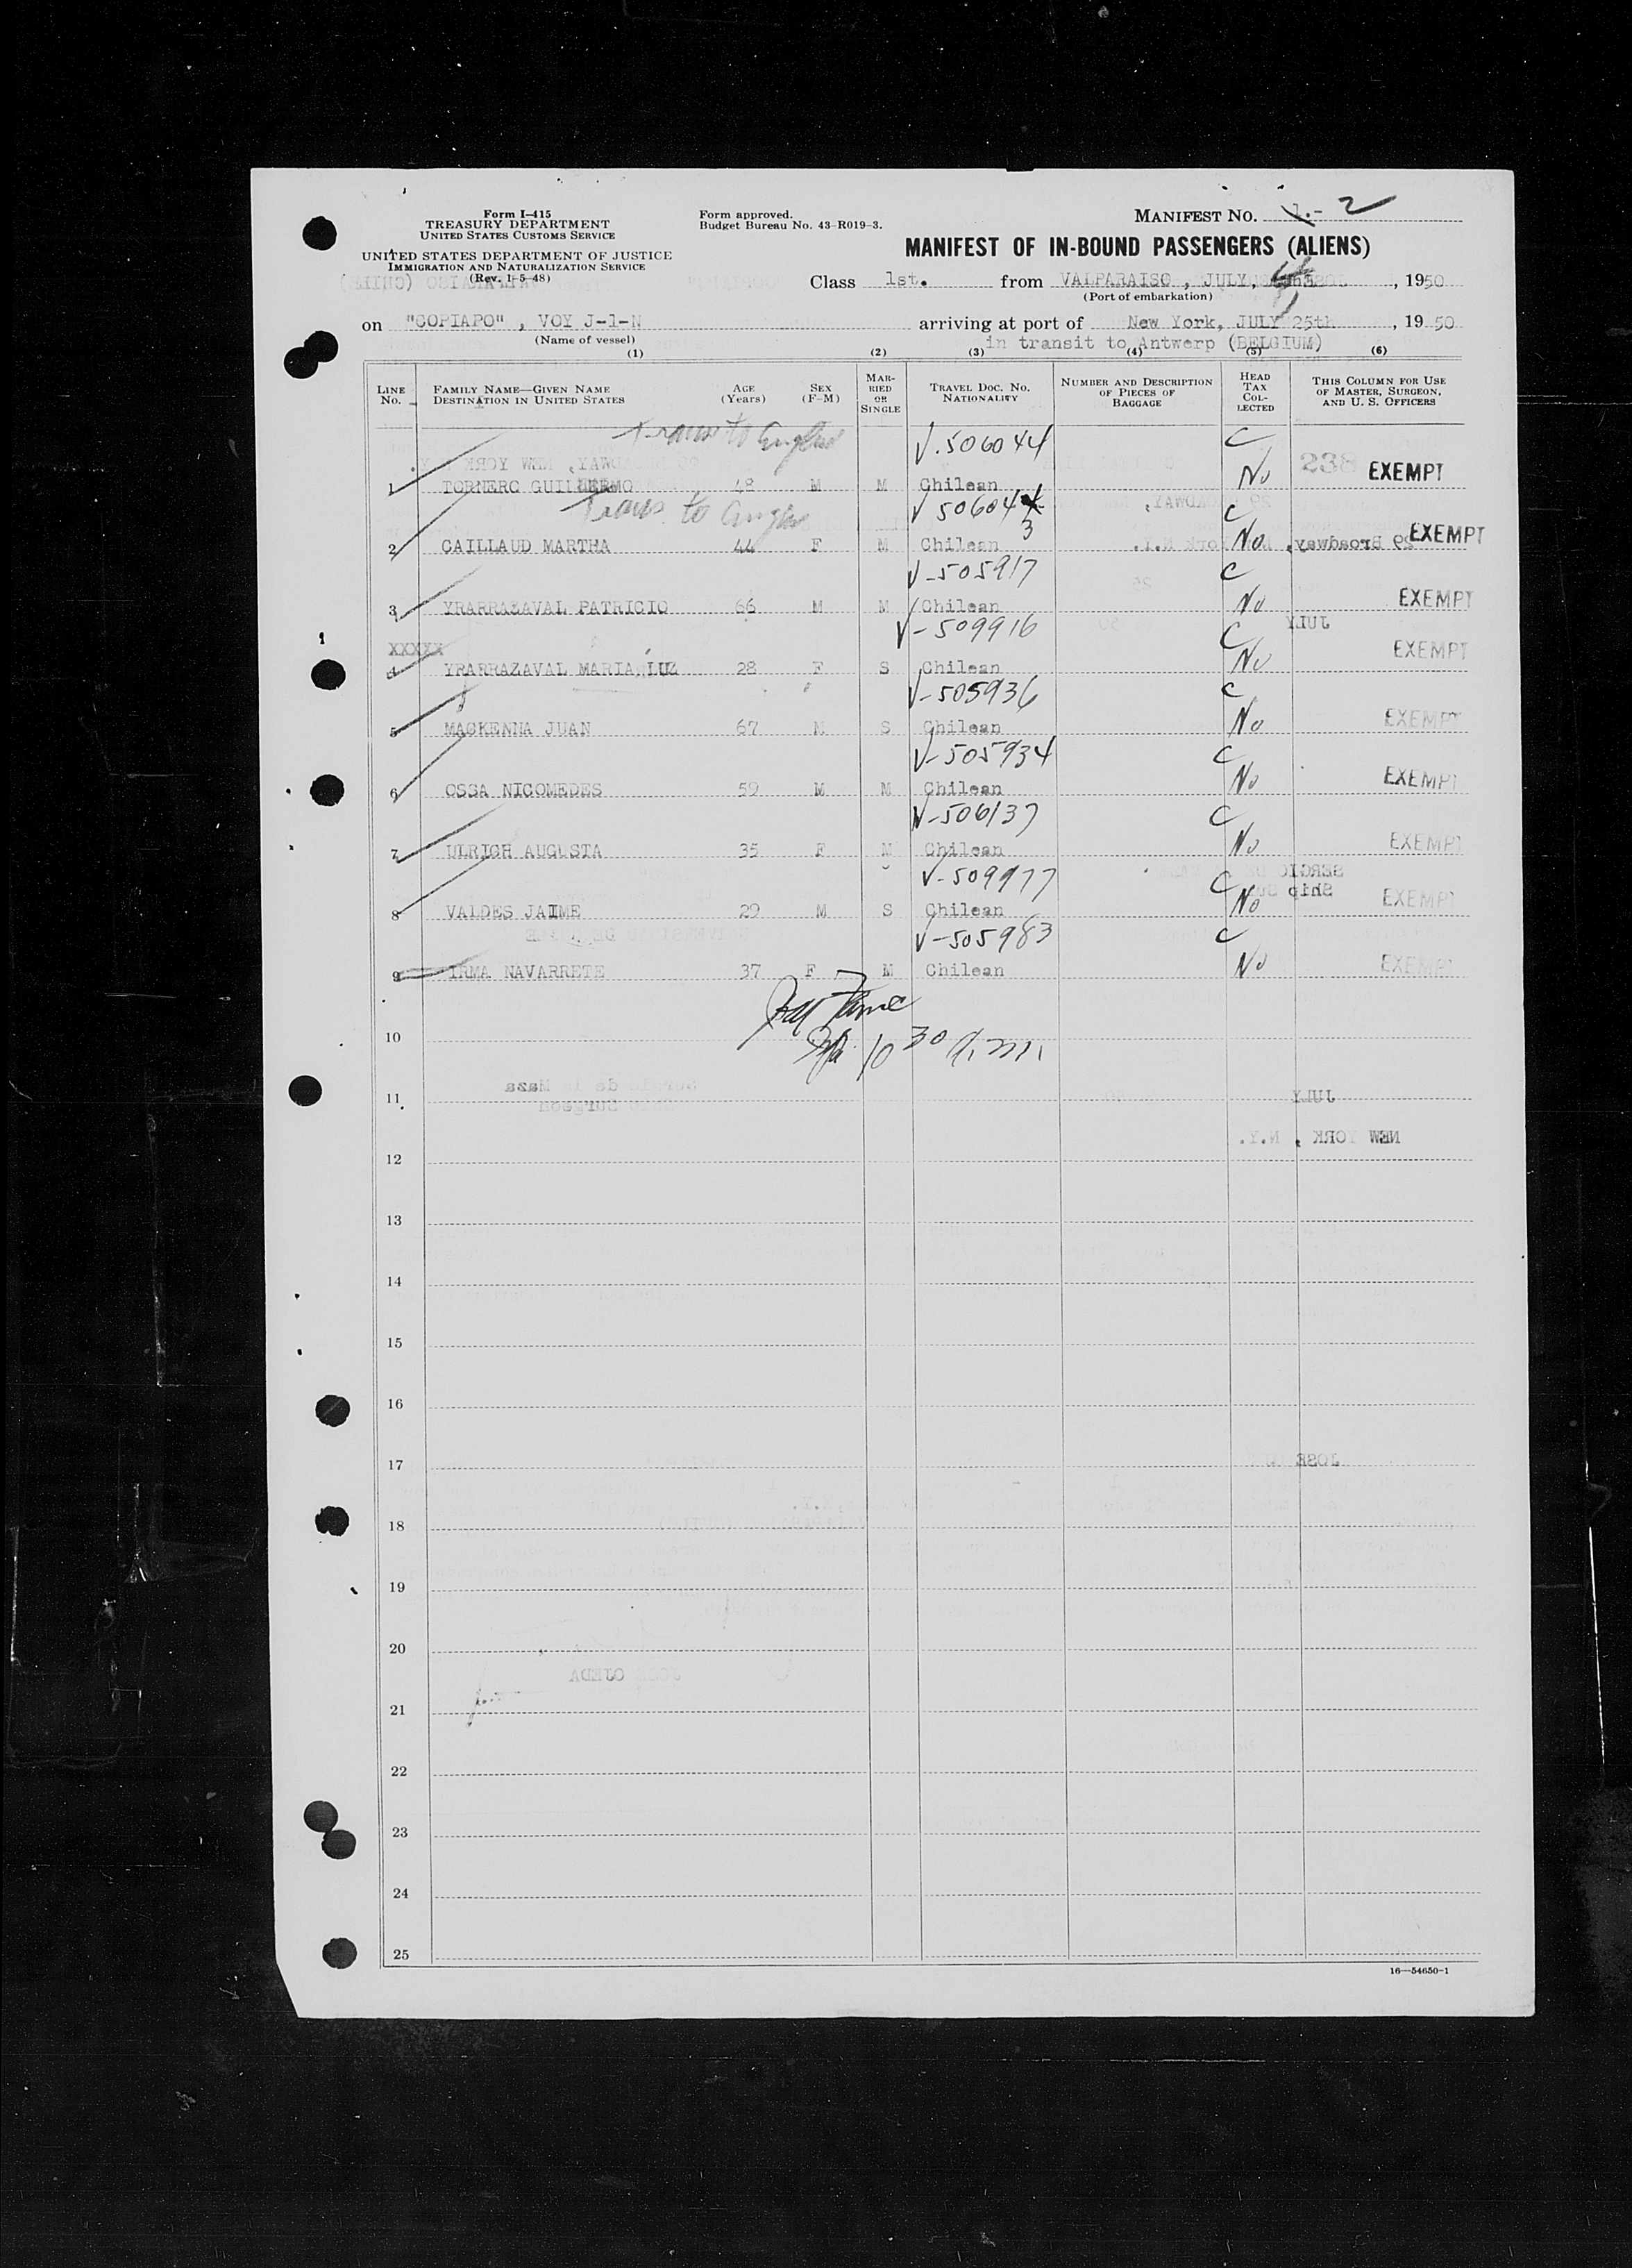 Form I-415
TREASURY DEPARTMENT
UNITED STATES CUSTOMS SERVICE
UNITED STATES DEPARTMENT OF JUSTICE
IMMIGRATION AND NATURALIZATION SERVICE
(Rev. 1-5-48)
Form approved.
Budget Bureau No. 43-R019-3.
MANIFEST NO. 1.- 2
MANIFEST OF IN-BOUND PASSENGERS (ALIENS)
Class 1st. from VALPARAISO, JULY, , 1950
(Port of embarkation)
on "COPIAPO", VOY J-1-N arriving at port of New York, JULY 25th, 1950
(Name of vessel) in transit to Antwerp (BELGIUM)
(1) (2) (3) (4) (5) (6)
LINE No. FAMILY NAME—GIVEN NAME DESTINATION IN UNITED STATES AGE (Years) SEX (F-M) MARRIED OR SINGLE TRAVEL DOC. NO. NATIONALITY NUMBER AND DESCRIPTION OF PIECES OF BAGGAGE HEAD TAX COLLECTED THIS COLUMN FOR USE OF MASTER, SURGEON, AND U. S. OFFICERS
Trans to England V-506044 C
1 TORNERO GUILLERMO 48 M M Chilean No 238 EXEMPT
Trans. to V 506043 C
2 CAILLAUD MARTHA 44 F M Chilean No EXEMPT
V-505917 C
3 YRARRAZAVAL PATRICIO 66 M M Chilean No EXEMPT
XXXXX V-509916 C
4 YRARRAZAVAL MARIA LUZ 28 F S Chilean No EXEMPT
V-505936 C
5 MACKENNA JUAN 67 M S Chilean No EXEMPT
V-505934 C
6 OSSA NICOMEDES 59 M M Chilean No EXEMPT
V-506137 C
7 ULRICH AUGUSTA 35 F M Chilean No EXEMPT
V-509977 C
8 VALDES JAIME 29 M S Chilean No EXEMPT
V-505983 C
9 IRMA NAVARRETE 37 F M Chilean No EXEMPT
10 10 30 a.m.
11
12
13
14
15
16
17
18
19
20
21
22
23
24
25
16—54650-1